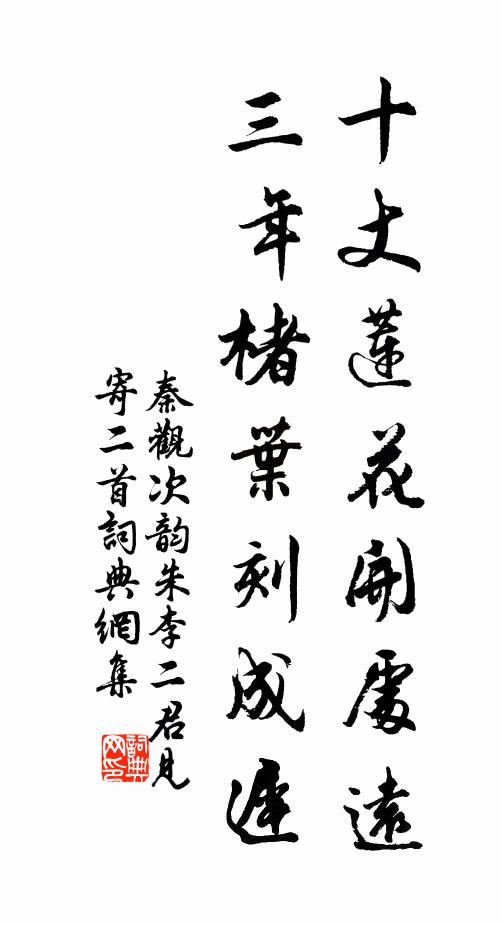 十丈蓮花開處遠
三年楮葉刻成遲
秦觀次韵朱李二君見
寄二首詞典網集
詞典
网印